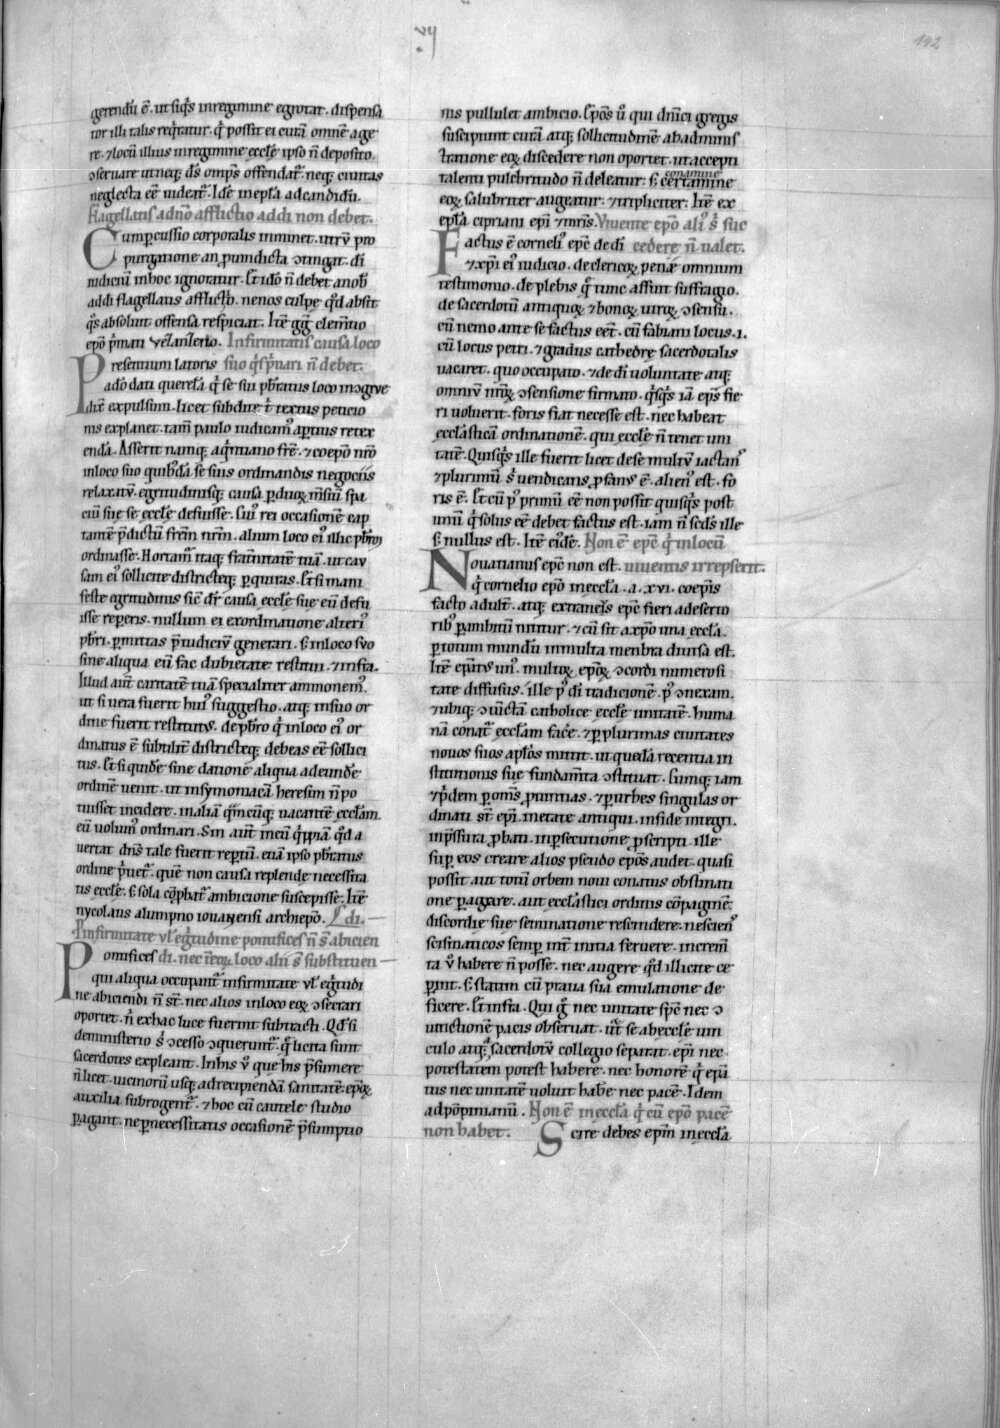 vij
142
gerendū ē. ut siqͥs inregimine egrotat. dispensa
tor illi talis req̄ratur. qͥ possit ei curā omnē age
re. ⁊ locū illius inregimine eccłe ipso n̄ deposito.
ↄseruare ut neq; d̄s omp̄s offendat᷑. neq; ciuitas
neglecta eē uideat᷑. Idē inepl̄a adcandidū.
flagellatis adn̄o afflictio addi non debet.
Cum ꝑcussio corporalis imminet. utrū pro
purgatione an ꝓ uindicta ↄtingat. di
iudiciū inhoc ignoratur. Et idō n̄ debet anob̄
addi flagellatis afflictō. ne nos culpe qd̄ absit
qͥs absoluit offensa respiciat. Itē gg̃ clemtio
ep̄o pͥmati
Infirmitatis causa loco
Presentium latoris suo qͥsp̄uari n̄ debet.
adōdati querela qͥ se sui pb̄ratus loco ingrue
dit̄ expulsum. licet subdit᷑ textus peticio
nis explanet. tam̄ paulo iudicam᷒ apertius retex
endā. Asserit namq; aq̄riano fr̄e. ⁊ coep̄o nr̄o
inloco suo quib᷒dā se suis ordinandis negociis
relaxatū. egritudinisq; causa ꝑ duoꝝ m̄siū spa
ciū sue se eccłe defuisse. Cui᷒ rei occasionē cap
tantē p̄dictū fr̄em nr̄m. alium loco ei᷒ illic pb̄rm
ordinasse. Hortam᷒ itaq; fr̄nitatē tuā. ut cau
sam ei᷒ sollicite districteq; ꝑquiras. Et si mani
feste egritudinis sic̄ dr̄ causa eccłe sue eū defu
isse repperis. nullum ei exordinatione alteri᷒
pb̄ri. ꝑmittas p̄iudiciū generari. s; inloco suo
sine aliqua eū fac dubietate restitui. ⁊ infra.
Illud aut̄ caritatē tuā specialiter ammonem᷒.
ut si uera fuerit hui᷒ suggestio. atq; insuo or
dine fuerit restitutus. de pb̄ro qͥ inloco ei᷒ or
dinatus ē subtilit̄ districteq; debeas eē sollici
tus. Et si quidē sine datione aliqua adeundē
ordinē uenit. ut insymoniacā heresim n̄ po
tuisset incidere. inaliā qͣm cūq; uacantē eccłam
eū uolum᷒ ordinari. Sin aut̄ incū
uertat dn̄s tale fuerit repertū. etiā ipso pb̄ratus
ordine pͥuet᷑. quē non causa replende necessita
tis eccłe. s; sola cōpbat᷑ ambicione suscepisse. Itē
nycolaus alumpno iouanensi archiepō.
Infirmitate ul̄ eg̃tudine pontifices n̄ s̄ abicien
Pontifices di. nec īeoꝝ loco alii s̄ substituen
qui aliqua occupant᷑ infirmitate ul̄ eg̃tudi
ne abiciendi n̄ st̄. nec alios inloco eoꝝ ↄsecrari
oportet. n̄ exhac luce fuerint subtracti. Qd̄ si
deministerio s̄ ↄcesso ↄquerunt᷑. qͣ licita sunt
sacerdotes expleant. Inhis ū que his p̄sumere
n̄ licet. uicinorū usq; adrecipiendā sanitatē. ep̄oꝝ
auxilia subrogent᷑. ⁊ hoc cū cautele studio
ꝑagant. ne ꝑ necessitatis occasionē p̄sumptio
nis pullulet ambicio. Ep̄os ū qui dn̄ici gregis
suscipiunt curā atq; sollicitudinē abadminis
tratione eoꝝ discedere non oportet. ut accepti
talenti pulchritudo n̄ deleatur. s; certamine
conamine
eoꝝ salubriter augeatur. ⁊ mp̄liciter. Itē ex
epl̄a cipriani epī ⁊ mr̄is. Viuente ep̄o ali᷒ s̄ suc
Factus ē corneli᷒ ep̄c de dī cedere n̄ ualet.
⁊ xp̄i ei᷒ iudicio. de clericoꝝ pene omnium
testimonio. de plebis qͥ tunc affuit suffragio.
de sacerdotū antiquoꝝ ⁊ bonoꝝ uiroꝝ ↄsensu.
cū nemo ante se factus eēt. cū fabiani locus. i.
cū locus petri. ⁊ gradus cathedrę sacerdotalis
uacaret. quo occupato. ⁊ de dī uoluntate atq;
omniū nr̄oꝝ ↄsensione firmato. qͥsqͥs iā ep̄s fie
ri uoluerit. foris fiat necesse est. nec habeat
eccl̄asticā ordinationē. qui eccłe n̄ tenet uni
tatē. Quisqͥs ille fuerit licet de se multū iactans
⁊ plurimū s̄ uendicans. ꝓfanus ē. alien᷒ est. fo
ris ē. Et cū p᷒ primū eē non possit quisqͥs post
unū qͥ solus eē debet factus est. iam n̄ sc̄ds ille
s; nullus est. Itē ei᷒dē. Non ē ep̄c qͥ inlocū
Nouatianus ep̄c non est. uiuentis irrepserit.
qͥ cornelio ep̄o ineccła. a. xvi. coep̄is
facto adult᷑. atq; extraneis ep̄c fieri adeserto
rib᷒ ꝑ ambitū nititur. ⁊ cū sit axp̄o una eccła.
ꝑ totum mundū inmulta menbra diuisa est.
Itē ep̄at᷒ un᷒. multoꝝ ep̄oꝝ ↄcordi numerosi
tate diffusus. ille p᷒ dī tradicionē. p᷒ ↄnexam.
⁊ ubiq; ↄiūctā catholice eccłe unitatē. huma
nā conat᷑ eccłam facē. ⁊ ꝑ plurimas ciuitates
nouos suos apłos mittit. ut quedā recentia in
stitutionis sue fundam̄ta ↄstituat. Cumq; iam
⁊ pͥdem ꝑ om̄s ꝓuintias. ⁊ ꝑ urbes singulas or
dinati st̄ epī. inetate antiqui. infide integri.
inp̄ssura ꝓbati. inꝑsecutione ꝓscripti. ille
suꝑ eos creare alios pseudo ep̄os audet. quasi
possit aut totū orbem noui conatus obstinati
one ꝑagrare. aut eccłastici ordinis cōpaginē
discordie sue seminatione rescindere. nescien᷒
scismaticos semꝑ int᷑ initia feruere. increm̄
ta ū habere n̄ posse. nec augere qd̄ illicite ce
ꝑint. s; statim cū praua sua emulatione de
ficere. Et infra. Qui qͥ nec unitatē sp̄c nec ↄ
iunctionē pacis obseruat. ⁊ se ab eccłe uin
culo atq; a sacerdotū collegio separat. epī nec
potestatem potest habere. nec honorē qͥ ep̄a
tus nec unitatē uoluit habē nec pacē. Idem
adpōpinianū. Non ē ineccła qͥ cū ep̄o pacē
non habet. Scire debes ep̄m ineccła